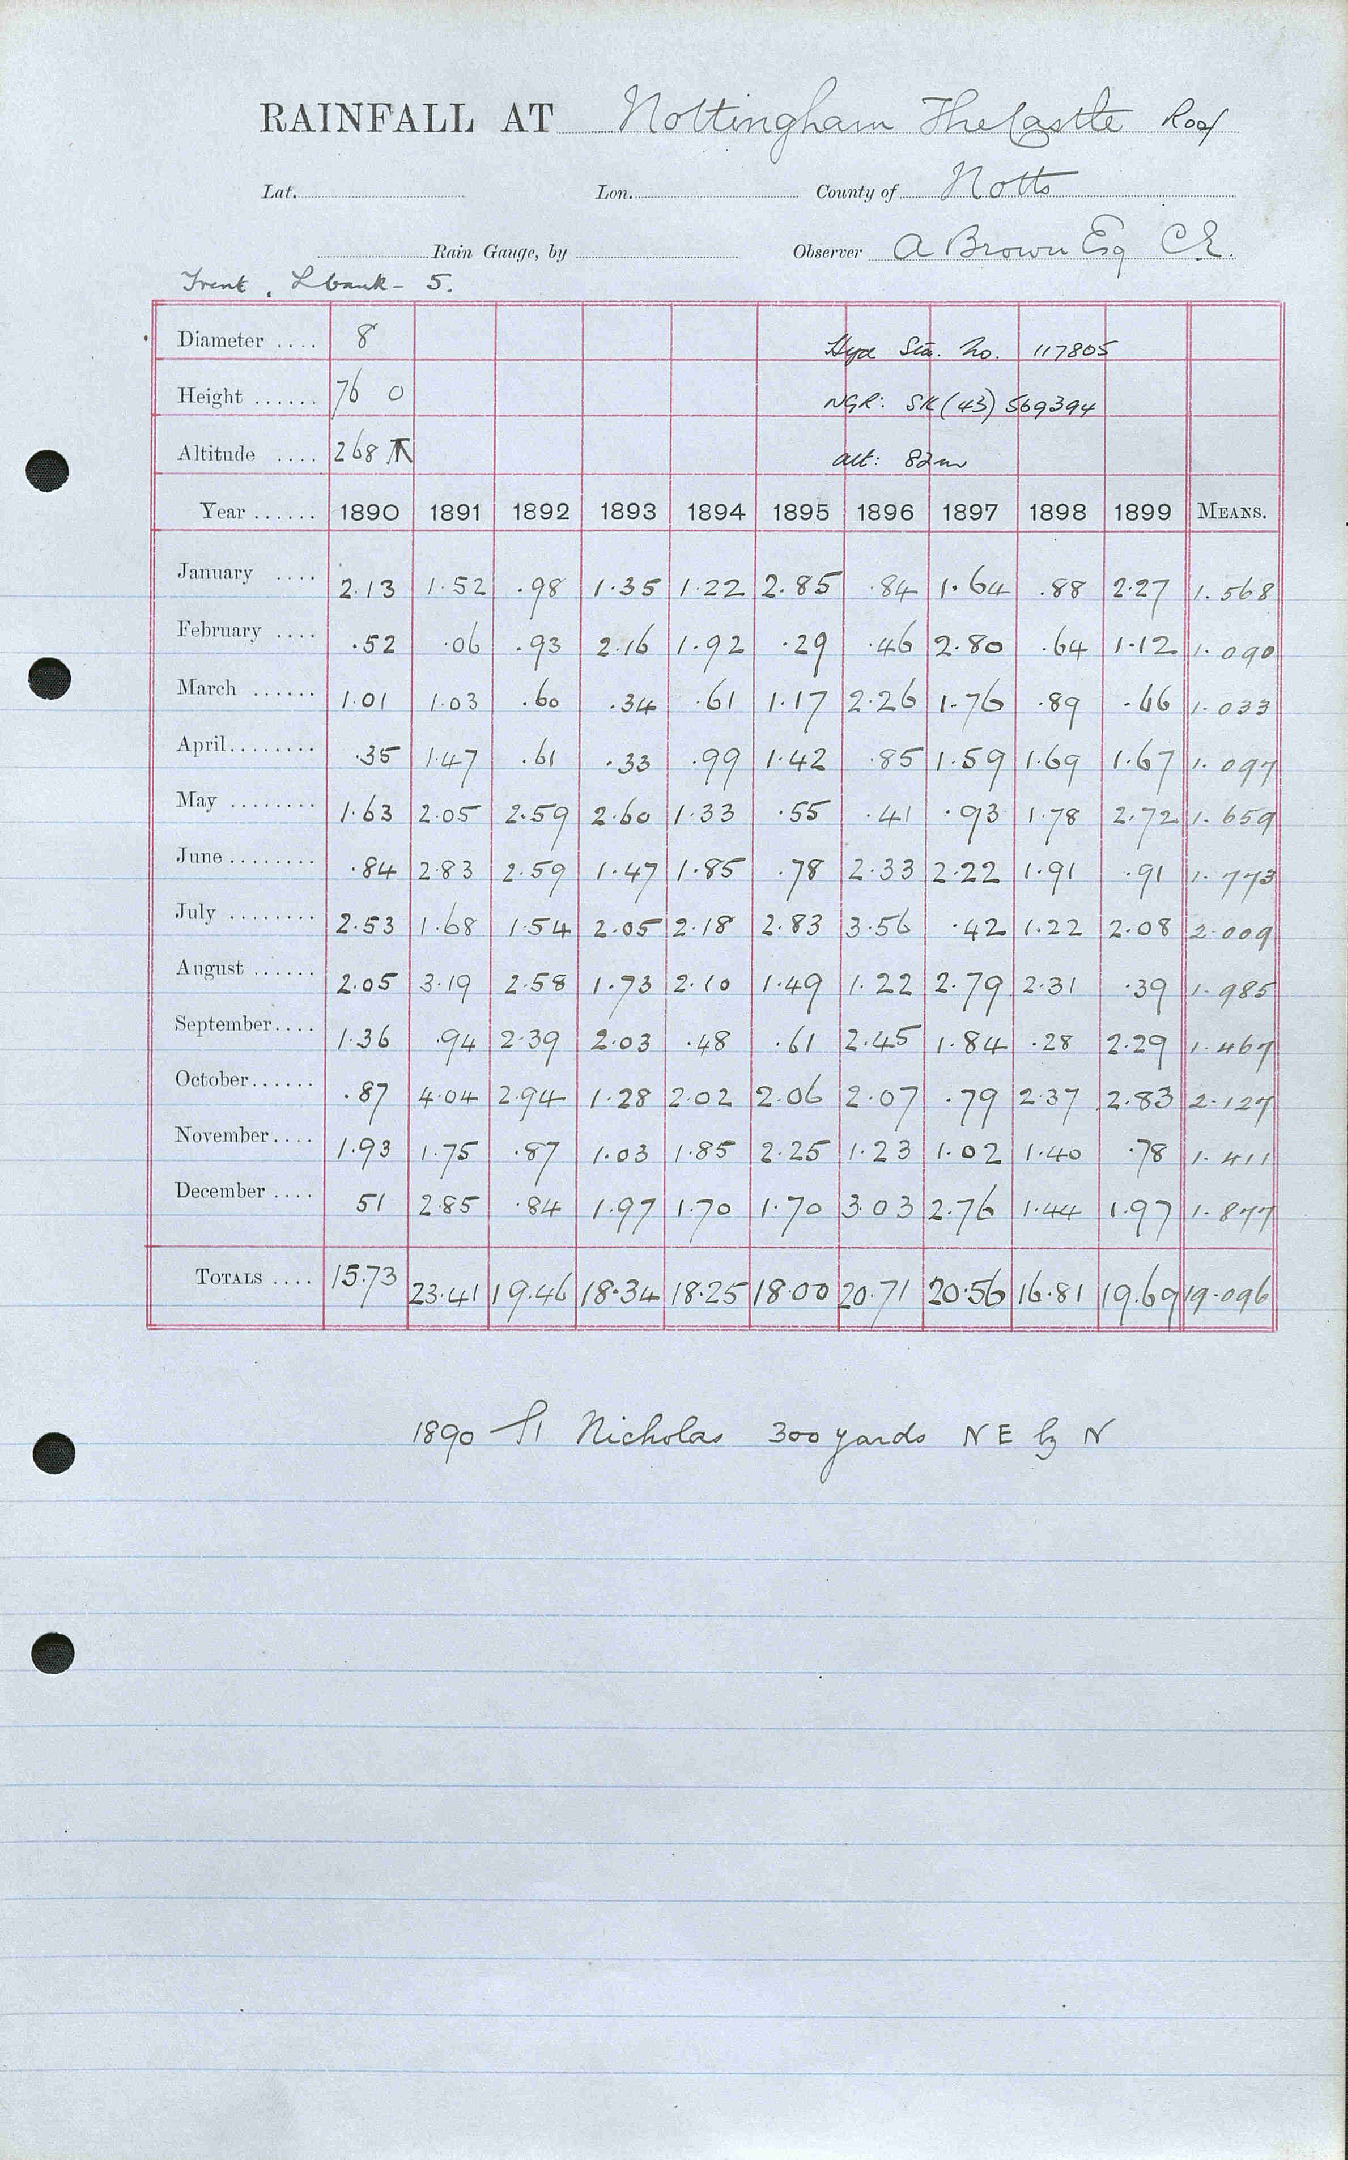 RAINFALL AT Nottingham The Castle Roof
Lat. Lon. County of Notts
Rain Gauge, by Observer A Brown Esq C.E.
Trent. L bank - 5.
Diameter .... 8 Hyd Sta. No. 117805
Height ...... 76 0 NGR: SK (43) 569394
Altitude .... 268 alt: 82m
Year ...... 1890 1891 1892 1893 1894 1895 1896 1897 1898 1899 MEANS.
January .... 2.13 1.52 .98 1.35 1.22 2.85 .84 1.64 .88 2.27 1.568
February .... .52 .06 .93 2.16 1.92 .29 .46 2.80 .64 1.12 1.090
March ...... 1.01 1.03 .60 .34 .61 1.17 2.26 1.76 .89 .66 1.033
April........ .35 1.47 .61 .33 .99 1.42 .85 1.59 1.69 1.67 1.097
May ........ 1.63 2.05 2.59 2.60 1.33 .55 .41 .93 1.78 2.72 1.659
June ........ .84 2.83 2.59 1.47 1.85 .78 2.33 2.22 1.91 .91 1.773
July ........ 2.53 1.68 1.54 2.05 2.18 2.83 3.56 .42 1.22 2.08 2.009
August ...... 2.05 3.19 2.58 1.73 2.10 1.49 1.22 2.79 2.31 .39 1.985
September.... 1.36 .94 2.39 2.03 .48 .61 2.45 1.84 .28 2.29 1.467
October...... .87 4.04 2.94 1.28 2.02 2.06 2.07 .79 2.37 2.83 2.127
November.... 1.93 1.75 .87 1.03 1.85 2.25 1.23 1.02 1.40 .78 1.411
December .... 51 2.85 .84 1.97 1.70 1.70 3.03 2.76 1.44 1.97 1.877
TOTALS .... 15.73 23.41 19.46 18.34 18.25 18.00 20.71 20.56 16.81 19.69 19.096
1890 St Nicholas 300 yards N E by N